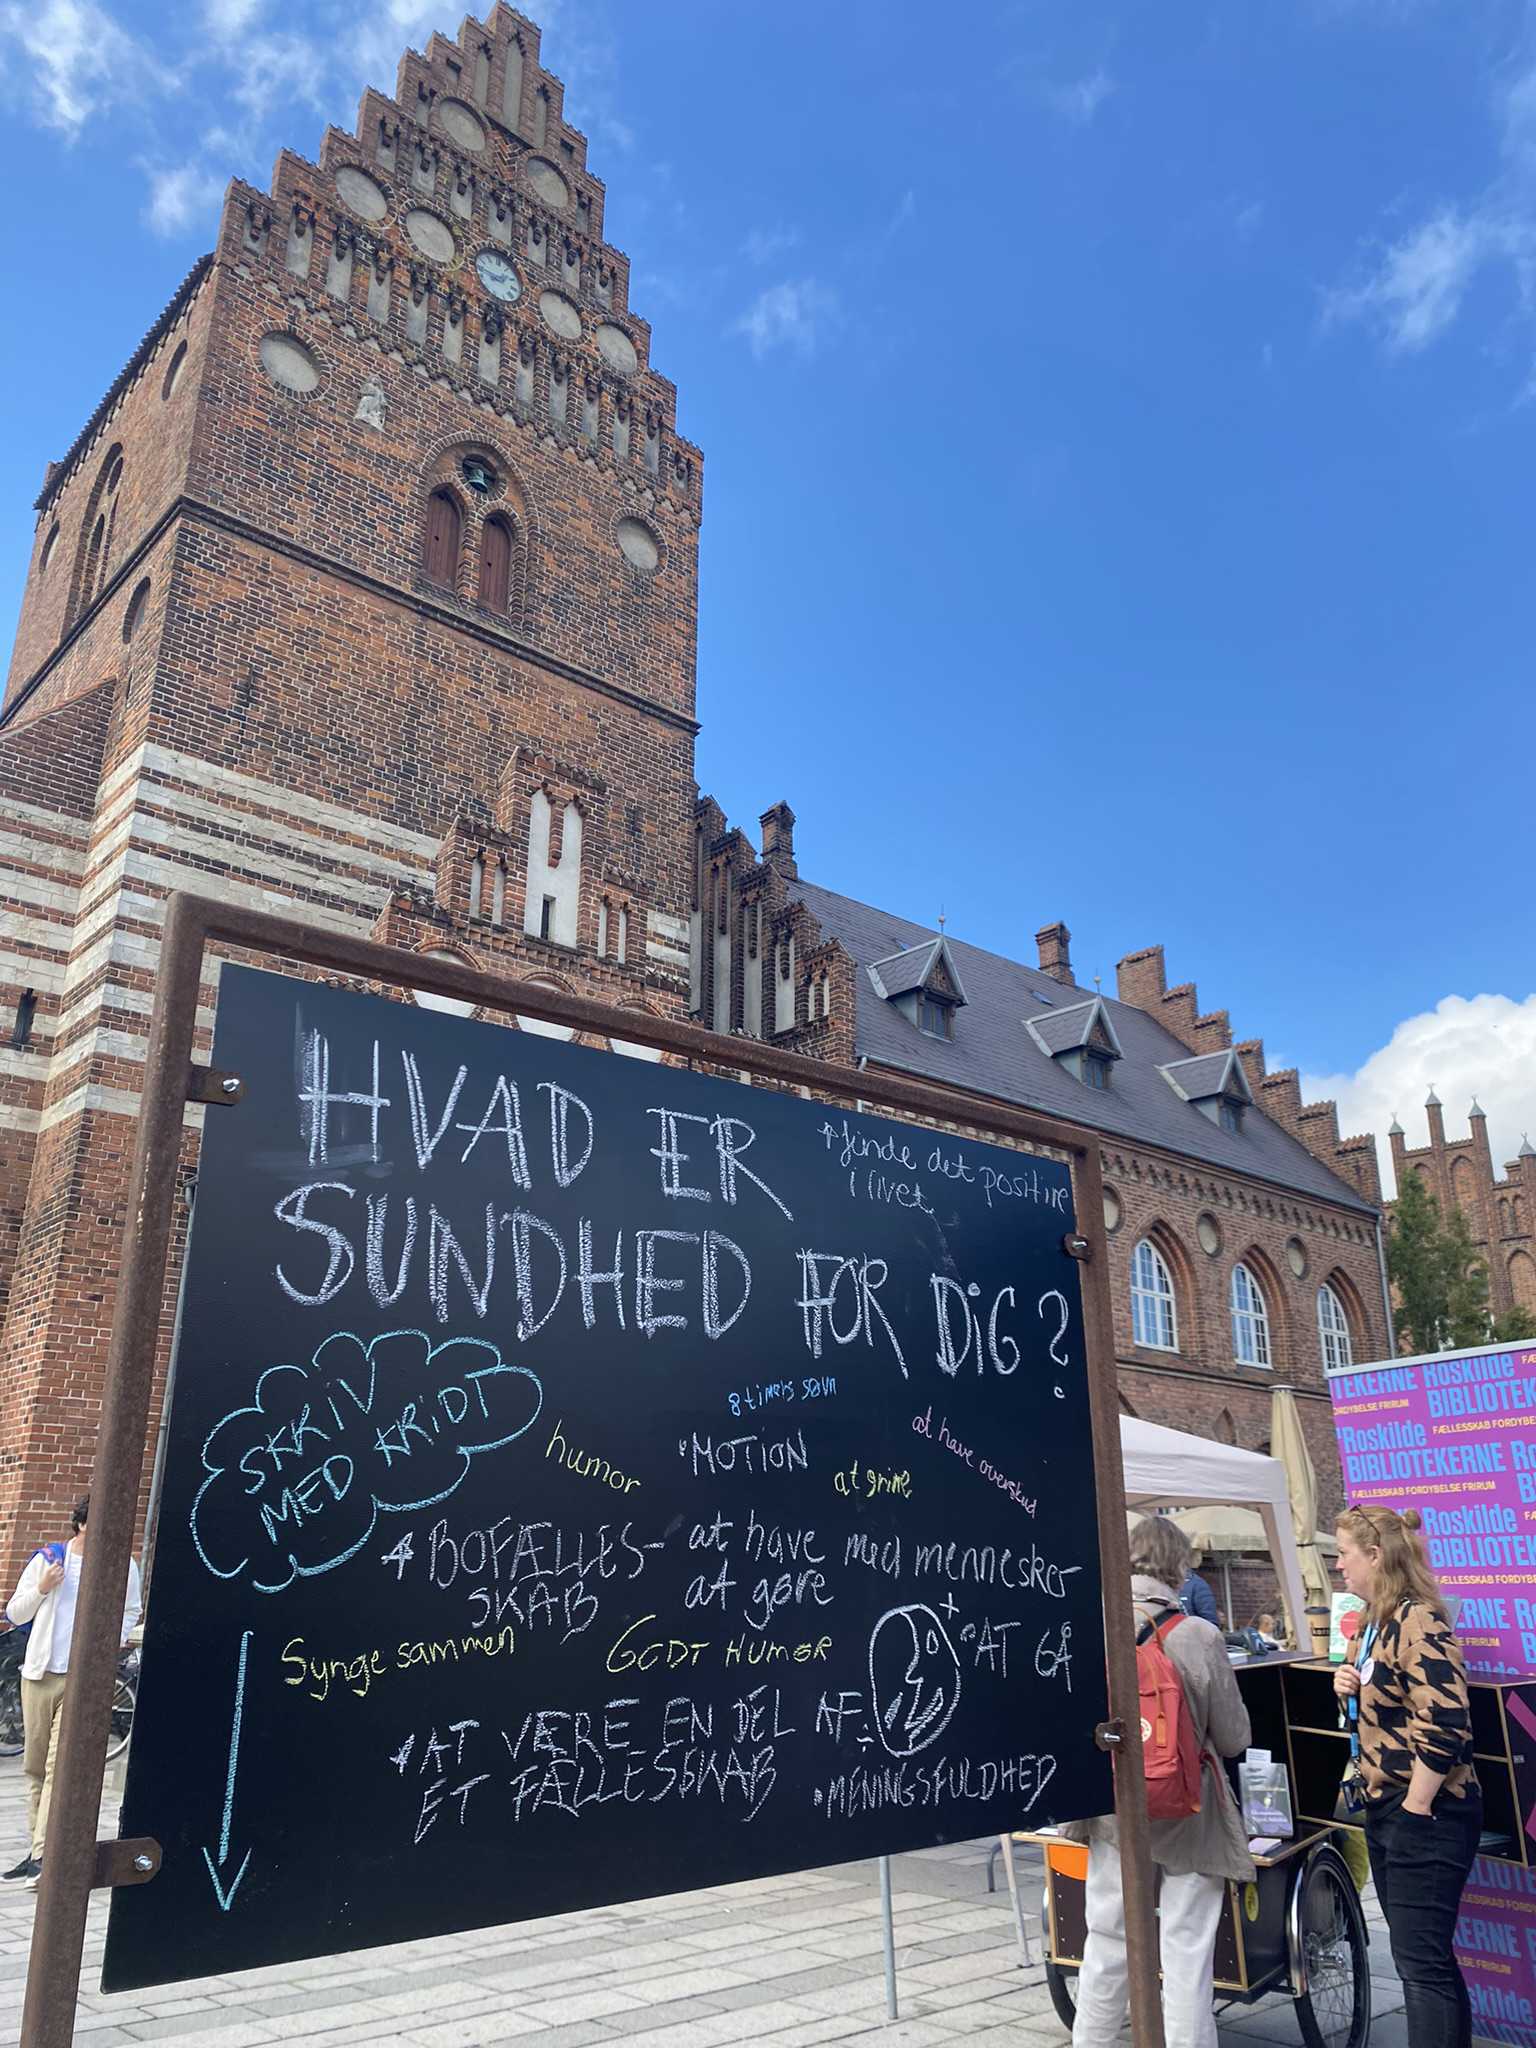 HVAD ER
SUNDHED FOR DIG?
finde det positive
i livet
SKRIV
MED KRIDT
8 timers søvn
humor
MOTION
at grine
at have overskud
BOFÆLLES-
SKAB
at have med mennesker
at gøre
Synge sammen
GODT HUMØR
AT GÅ
AT VÆRE EN DEL AF
ET FÆLLESSKAB
MENINGSFULDHED
TEKERNE Roskilde
BIBLIOTEK
ORDYBELSE FRIRUM
FÆLLESSKAB FORDYBE
Roskilde
BIBLIOTEKERNE
FÆLLESSKAB FORDYBELSE FRIRUM
Roskilde
BIBLIOTEK
FÆLLESSKAB FORDYBE
ERNE Ros
SE FRIRUM